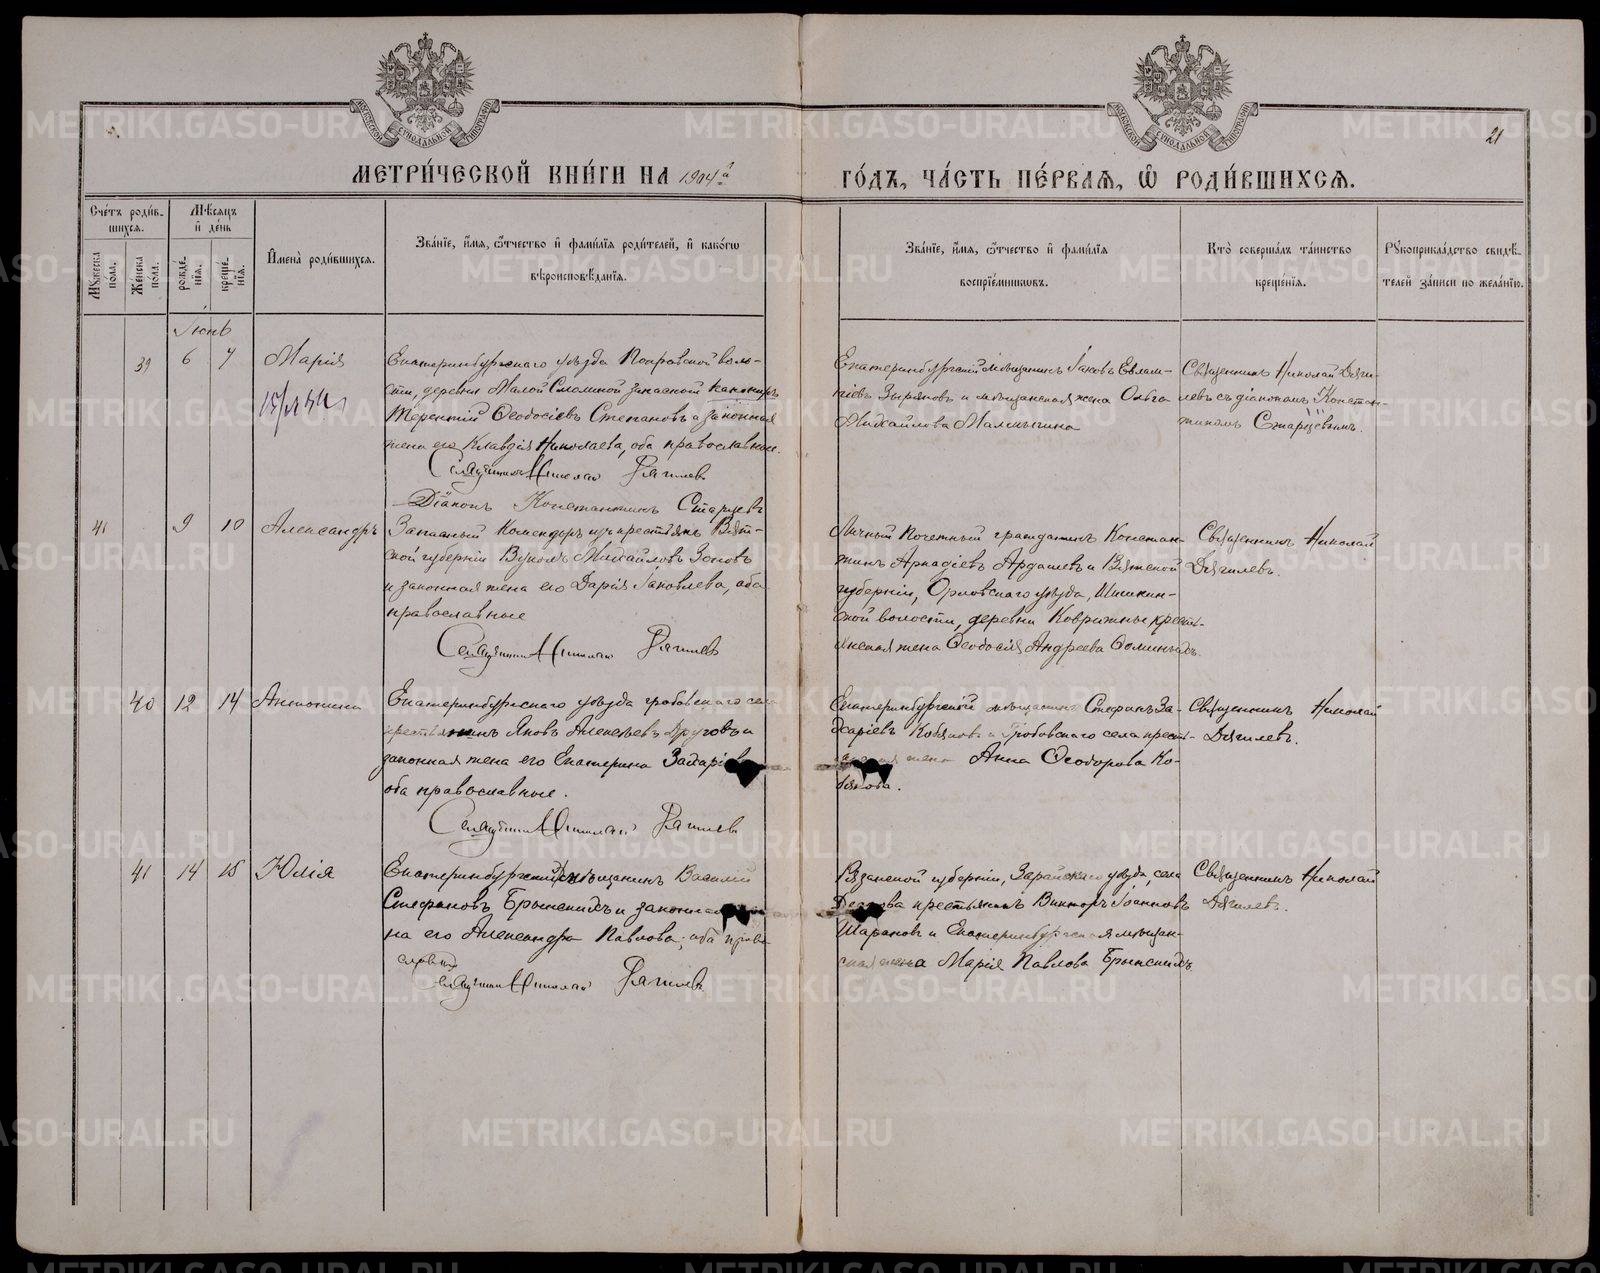 МОСКОВСКОЙ СѴНОДАЛЬНОЙ ТИПОГРАФІИ
МОСКОВСКОЙ СѴНОДАЛЬНОЙ ТИПОГРАФІИ
21
МЕТРИ́ЧЕСКОЙ КНИ́ГИ НА 1904й
ГО́ДЪ, ЧА́СТЬ ПЕ́РВАЯ, Ѿ РОДИ́ВШИХСЯ.
Сче́тъ роди́в-
шихся.
Мѣ́сяцъ
и҆ де́нь
Мꙋ́жеска по́ла.
Же́нска по́ла.
рожде́-нїя.
креще́-нїя.
И҆мена̀ роди́вшихся.
Зва́нїе, и҆́мя, ѻ҆́тчество и҆ фами́лїя роди́телей, и҆ како́гѡ
вѣроисповѣ́данїя.
Зва́нїе, и҆́мя, ѻ҆́тчество и҆ фами́лїя
воспрїе́мникѡвъ.
Кто̀ соверша́лъ та́инство
креще́нїя.
Рꙋкоприкла́дство свидѣ́-
телей за́писи по жела́нїю.
Іюнь
39 6 7 Марія
Екатеринбургскаго уѣзда Покровской воло-
сти, деревни Малой Смолиной запасной канониръ
Терентій Ѳеодосіевъ Степановъ и законная
жена его Клавдія Николаева, оба православные.
Священникъ Николай Дягилевъ
Діаконъ Константинъ Старцевъ
Екатеринбургскій мѣщанинъ Іаковъ Евлам-
піевъ Зыряновъ и мѣщанская жена Ольга
Михайлова Малмыгина
Священникъ Николай Дяги-
левъ съ діакономъ Констан-
тиномъ Старцевымъ.
41 9 10 Александръ
Запасный Комендоръ изъ крестьянъ Вят-
ской губерніи Вуколъ Михайловъ Зоновъ
и законная жена его Дарія Іаковлева, оба
православные
Священникъ Николай Дягилевъ
Личный Почетный гражданинъ Констан-
тинъ Аркадіевъ Ардашевъ и Вятской
губерніи, Орловскаго уѣзда, Шишкин-
ской волости, деревни Коврижны кресть-
янская жена Ѳеодосія Андреева
Священникъ Николай
Дягилевъ.
40 12 14 Антонина
Екатеринбургскаго уѣзда Гробовскаго села
крестьянинъ Яковъ Алексѣевъ Друговъ и
законная жена его Екатерина
оба православные.
Священникъ Николай Дягилевъ
Екатеринбургскій мѣщанинъ Стефанъ За-
харіевъ Кобяковъ и Гробовскаго села кресть-
жена Анна Ѳеодорова Ко-
бякова.
Священникъ Николай
Дягилевъ.
41 14 15 Юлія
Екатеринбургскій мѣщанинъ Василій
Стефановъ Брынскихъ и законная
на его Александра Павлова, оба право-
славные
Священникъ Николай Дягилевъ
Рязанской губерніи, Зарайскаго уѣзда, села
крестьянинъ Викторъ Іоанновъ
Шарановъ и Екатеринбургская мѣщан-
ская жена Марія Павлова Брынскихъ
Священникъ Николай
Дягилевъ.
METRIKI.GASO-URAL.RU